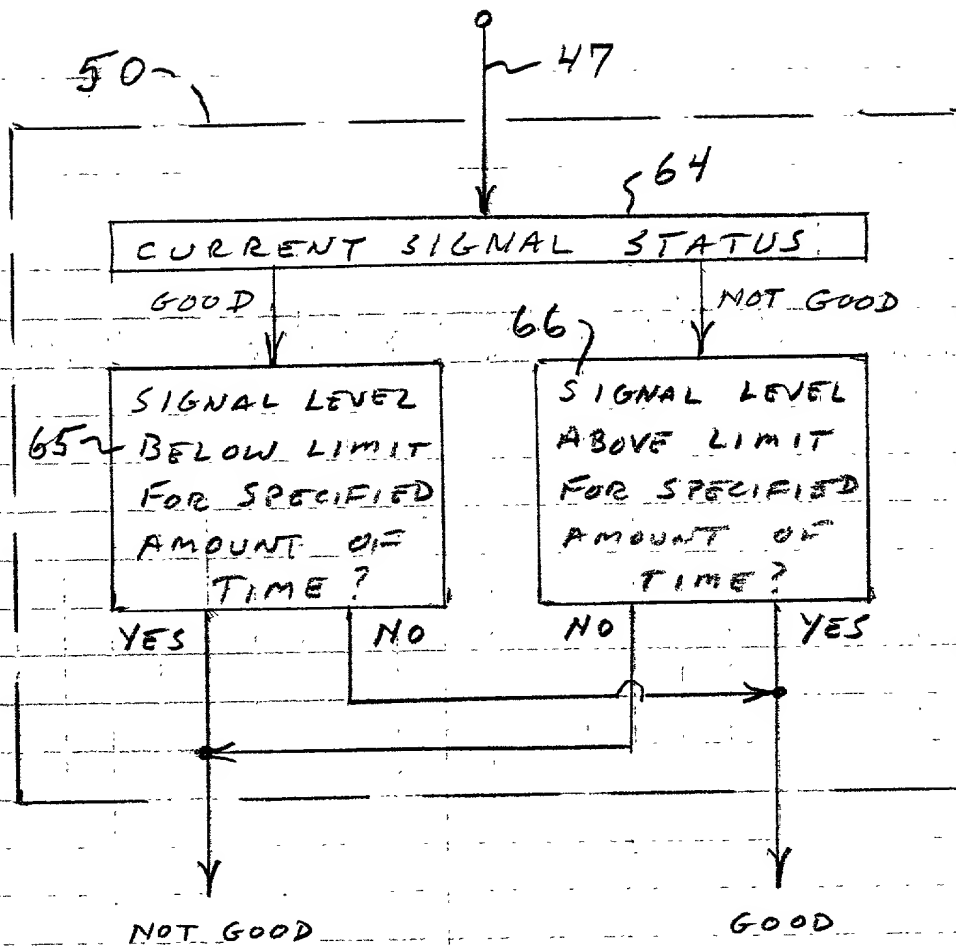 47
50
64
CURRENT SIGNAL STATUS
GOOD
NOT GOOD
66
SIGNAL LEVEL
65
BELOW LIMIT
FOR SPECIFIED
AMOUNT OF
TIME?
SIGNAL LEVEL
ABOVE LIMIT
FOR SPECIFIED
AMOUNT OF
TIME?
YES
NO
NO
YES
NOT GOOD
GOOD